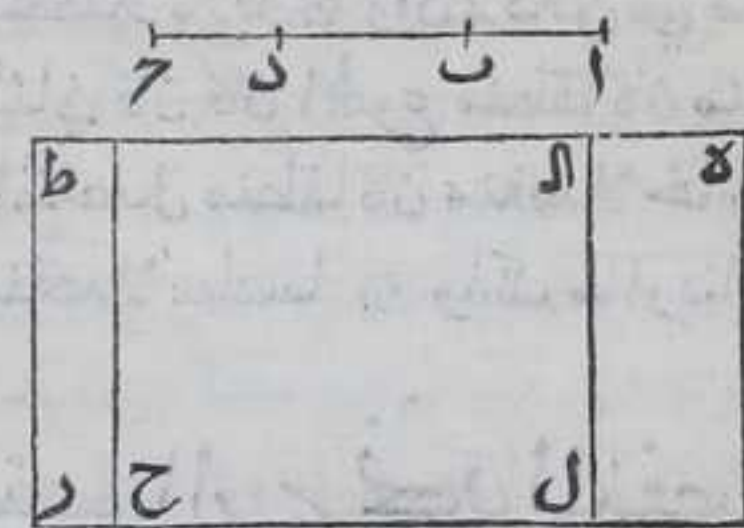 ا ب د ج
ه ك ط
ل ح ر